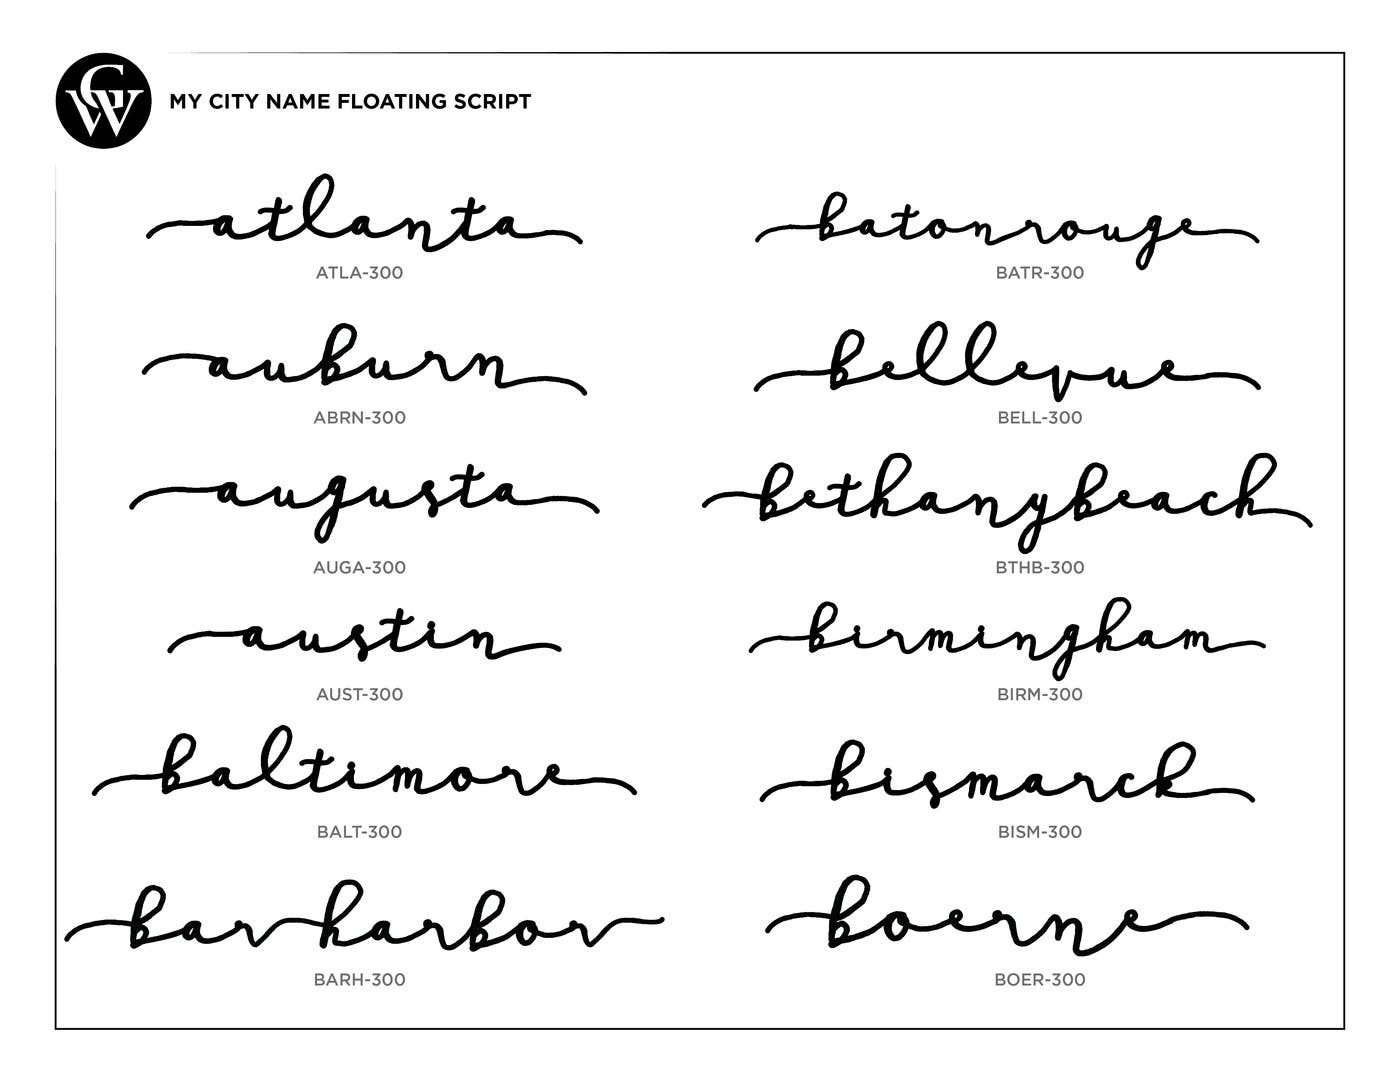 GW
MY CITY NAME FLOATING SCRIPT
atlanta
ATLA-300
auburn
ABRN-300
augusta
AUGA-300
austin
AUST-300
baltimore
BALT-300
barharbor
BARH-300
batonrouge
BATR-300
bellevue
BELL-300
bethanybeach
BTHB-300
birmingham
BIRM-300
bismarck
BISM-300
boerne
BOER-300